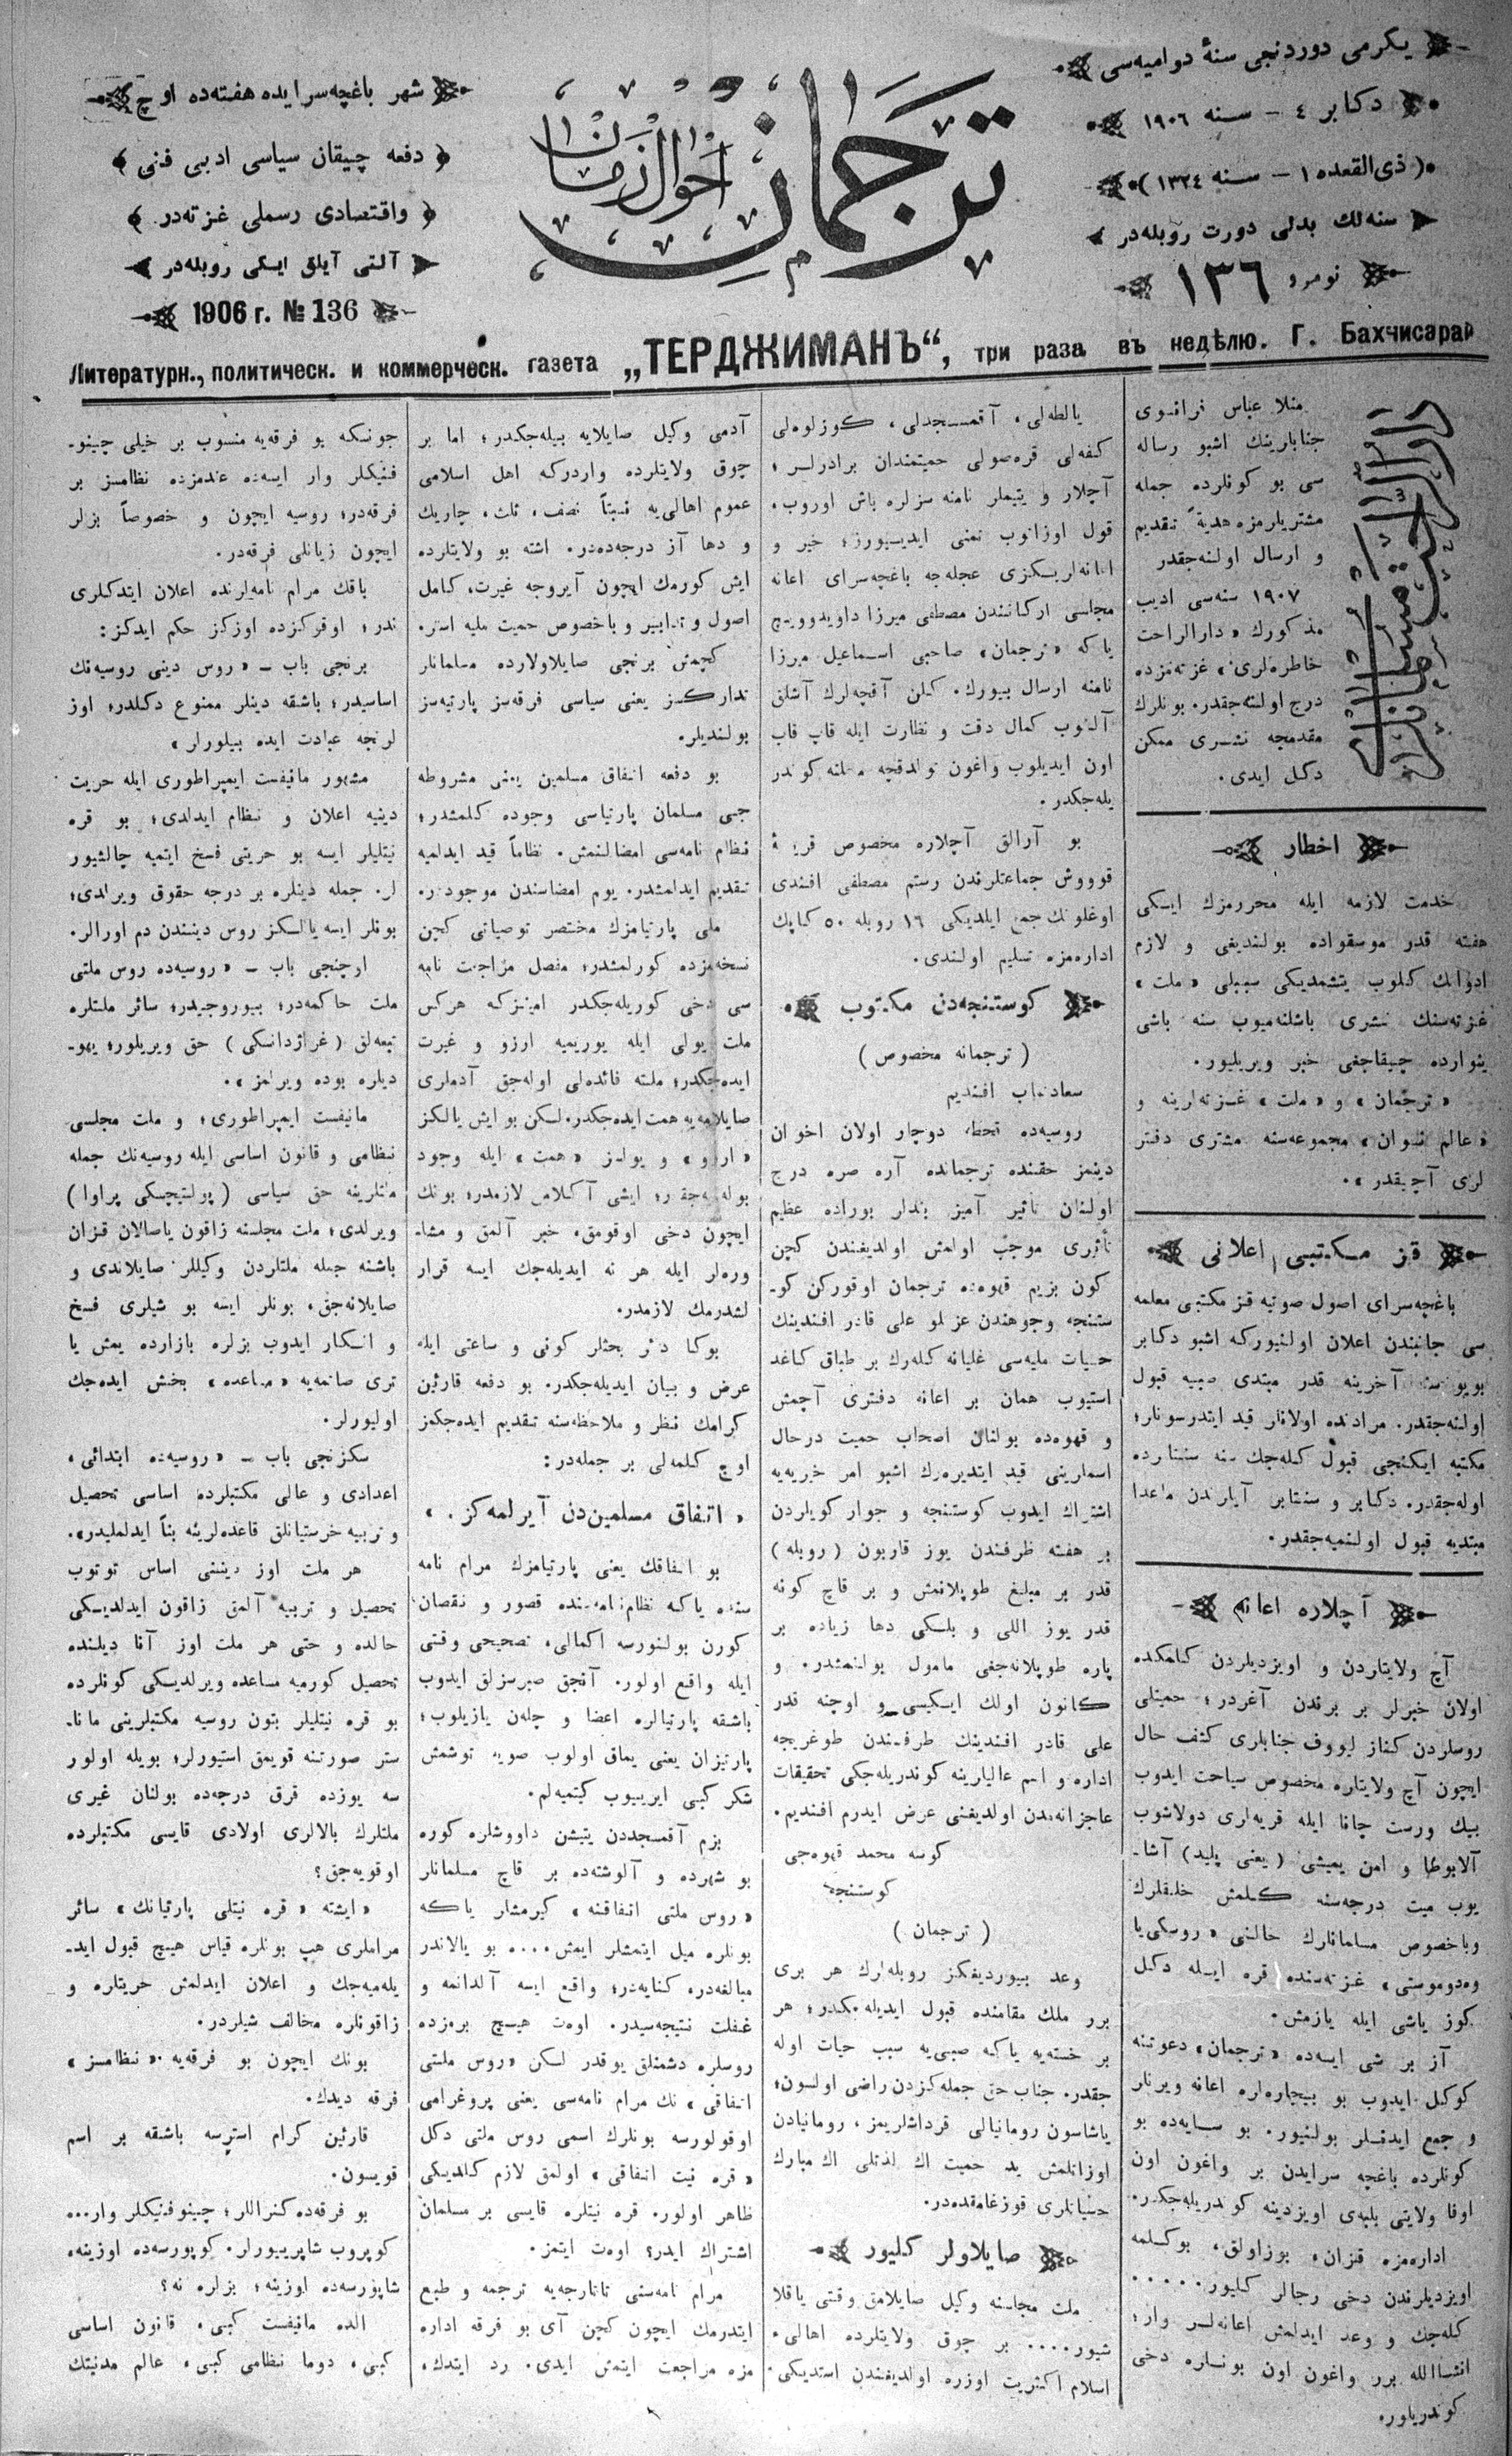 يكرمى دوردنجى سنهٔ دواميه‌سى
دكابر ٤ – سنه ١٩٠٦
(ذى القعده ١ – سنه ١٣٢٤)
سنه‌لك بدلى دورت روبله‌در
نومرو ١٣٦
ترجمان
احوال زمان
شهر باغچه‌سرايده هفته‌ده اوچ
دفعه چيقان سياسى ادبى فنى
واقتصادى رسملى غزته‌در
آلتى آيلق ايكى روبله‌در
1906 г. № 136
Литературн., политическ. и коммерческ. газета „ТЕРДЖИМАНЪ“, три раза въ недѣлю. Г. Бахчисарай
دار الراحت مسلمانلرى
منلا عباس فرانسوى
جنابلرينك اشبو رساله
سى بو كونلرده جمله
مشتريلرمزه هديةً تقديم
و ارسال اولنه‌جقدر
١٩٠٧ سنه‌سى اديب
مذكورك «دارالراحت
خاطره‌لرى» غزته‌مزده
درج اولنه‌جقدر. بونلرك
مقدمجه نشرى ممكن
دكل ايدى.
اخطار
خدمت لازمه ايله محررمزك ايكى
هفته قدر موسقواده بولنديغى و لازم
ادواتك كلوب يتشمديكى سببلى «ملت»
غزته‌سنك نشرى باشلنه‌ميوب سنه باشى
ينوارده چيقاجغى خبر ويريليور.
«ترجمان» و «ملت» غزته‌لرينه و
«عالم نسوان» مجموعه‌سنه مشترى دفتر
لرى آچيقدر».
قز مكتبى اعلانى
باغچه‌سراى اصول صوتيه قز مكتبى معلمه
سى جانبندن اعلان اولنيوركه اشبو دكابر
آخرينه قدر مبتدى صبيه قبول
اولنه‌جقدر. مرادنده اولانلر قيد ايتدرسونلر؛
مكتبه ايكنجى قبول كله‌جك سنه سنتابرده
اوله‌جقدر. دكابر و سنتابر آيلرندن ماعدا
مبتديه قبول اولنميه‌جقدر.
آچلاره اعانه
آچ ولايتلردن و اويزديلردن كلمكده
اولان خبرلر بر برندن آغردر؛ حميتلى
روسلردن كناز لبووف جنابلرى كشف حال
ايچون آچ ولايتلره مخصوص سياحت ايدوب
بيك ورست چانا ايله قريه‌لرى دولاشوب
آلابوطا و امن يميشى (يعنى پليد) آشا-
يوب ميت درجه‌سنه كلمش خلقلرك
وباخصوص مسلمانلرك حالنى «روسكى‌يا
وه‌دوموستى» غزته‌سنده قره ايله دكل
كوز ياشى ايله يازمش.
آز بر شى ايسه‌ده «ترجمان» دعوتنه
كوكل ايدوب بو بيچاره‌لره اعانه ويرنلر
و جمع ايدنلر بولنيور. بو سايه‌ده بو
كونلرده باغچه سرايدن بر واغون اون
اوفا ولايتى بلبه‌ى اويزدينه كوندريله‌جكدر.
اداره‌مزه قزان، بوزاولق، بوكلمه
اويزديلرندن دخى رجالر كليور.....
كله‌جك و وعد ايدلمش اعانه‌لر وار؛
انشاالله برر واغون اون بونلره دخى
كوندريلور.
يالطه‌لى، آقمسجدلى، كوزلوه‌لى
كفه‌لى قره‌صولى حميتمندان برادرلر؛
آچلار و يتيملر نامنه سزلره باش اوروب،
قول اوزانوب تمنى ايديورز؛ خير و
اعانه‌لريكزى عجله‌جه باغچه‌سراى اعانه
مجلسى اركانندن مصطفى ميرزا داويدوويچ
ياكه «ترجمان» صاحبى اسماعيل ميرزا
نامنه ارسال بيورك. كلن آقچه‌لرك آشلق
آلنوب كمال دقت و نظارت ايله قاپ قاپ
اون ايديلوب واغون تولدقچه محلنه كوندر
يله‌جكدر.
بو آرالق آچلاره مخصوص قريهٔ
قوووش جماعتلرندن رستم مصطفى افندى
اوغلونك جمع ايلديكى ١٦ روبله ٥٠ كاپك
اداره‌مزه تسليم اولندى.
كوستنجه‌دن مكتوب
(ترجمانه مخصوص)
سعادتمآب افنديم
روسيه‌ده قحطه دوچار اولان اخوان
دينمز حقنده ترجمانده آره صره درج
اولنان تأثير آميز بندلر بوراده عظيم
تأثرى موجب اولمش اولديغندن كچن
كون بزيم قهوه‌ده ترجمان اوقوركن كو-
ستنجه وجوهندن عزتلو على قادر افندينك
حسيات مليه‌سى غليانه كله‌رك بر طباق كاغد
استيوب همان بر اعانه دفترى آچمش
و قهوه‌ده بولنان اصحاب حميت درحال
اسملرينى قيد ايتديره‌رك اشبو امر خيريه‌يه
اشتراك ايدوب كوستنجه و جوار كويلردن
بر هفته ظرفندن يوز قاربون (روبله)
قدر بر مبلغ طوپلانمش و بر قاچ كونه
قدر يوز اللى و بلكى دها زياده بر
پاره طوپلانه‌جغى مامول بولنمشدر. و
كانون اولك ايكيسى و اوچنه قدر
على قادر افندينك طرفندن طوغريجه
اداره و اسم عاليلرينه كوندريله‌جكى تحقيقات
عاجزانه‌مدن اولديغنى عرض ايدرم افنديم.
كوسه محمد قهوه‌جى
كوستنجه
(ترجمان)
وعد بيورديغكز روبله‌لرك هر برى
برر ملك مقامنده قبول ايديله‌جكدر؛ هر
بر خسته‌يه ياكه صبى‌يه سبب حيات اوله
جقدر. جناب حق جمله‌كزدن راضى اولسون؛
ياشاسون رومانيالى قرداشلريمز، رومانيادن
اوزاتلمش يد حميت اك لذتلى اك مبارك
حسياتلرى قوزغامقده‌در.
صايلاولر كليور
ملت مجلسنه وكيل صايلامق وقتى ياقلا
شيور.... بر چوق ولايتلرده اهالى
اسلام اكثريت اوزره اولديغندن استديكى
آدمى وكيل صايلايه بيله‌جكدر؛ اما بر
چوق ولايتلرده واردركه اهل اسلامى
عموم اهالى‌يه نسبتاً نصف، ثلث، چاريك
و دها آز درجه‌ده‌در. اشته بو ولايتلرده
ايش كورمك ايچون آيروجه غيرت، كامل
اصول و تدابير و باخصوص حميت مليه استر.
كچمش برنجى صايلاولارده مسلمانلر
تداركسز يعنى سياسى فرقه‌سز پارتيه‌سز
بولنديلر.
بو دفعه اتفاق مسلمين يعنى مشروطه
جى مسلمان پارتياسى وجوده كلمشدر؛
نظام نامه‌سى امضالنمش. نظاماً قيد ايدلميه
تقديم ايدلمشدر. يوم امضاسندن موجوددر.
ملى پارتيامزك مختصر توصياتى كچن
نسخه‌مزده كورلمشدر؛ مفصل مراجعت نامه
سى دخى كوريله‌جكدر امينزكه هركس
ملت يولى ايله يوريميه ارزو و غيرت
ايده‌جكدر؛ ملته فائده‌لى اوله‌جق آدملرى
صايلامه‌يه همت ايده‌جكدر. لكن بو ايش يالكز
«ارزو» و يولسز «همت» ايله وجود
بوله‌مه‌جقدر؛ ايشى آكلامق لازمدر؛ بونك
ايچون دخى اوقومق، خبر آلمق و مشا-
وره‌لر ايله هر نه ايديله‌جك ايسه قرار
لشدرمك لازمدر.
بوكا دائر بحثلر كونى و ساعتى ايله
عرض و بيان ايديله‌جكدر. بو دفعه قارئين
كرامك نظر و ملاحظه‌سنه تقديم ايده‌جكمز
اوچ كلمه‌لى بر جمله‌در:
«اتفاق مسلمين‌دن آيرلمه‌كز.»
بو اتفاقك يعنى پارتيامزك مرام نامه
سنده ياكه نظام‌نامه‌سنده قصور و نقصان
كورن بولنورسه اكمالى، تصحيحى وقتى
ايله واقع اولور. آنجق صبرسزلق ايدوب
باشقه پارتيالره اعضا و چلەن يازيلوب؛
پارتيزان يعنى يماق اولوب صويه توشمش
شكر كبى ايرييوب كيتميه‌لم.
بزم آقمسجددن يتيشن داووشلره كوره
بو شهرده و آلوشته‌ده بر قاچ مسلمانلر
«روس ملتى اتفاقنه» كيرمشلر ياكه
بونلره ميل ايتمشلر ايمش.... بو يالاندر
مبالغه‌در، كنايه‌در؛ واقع ايسه آلدانمه و
غفلت نتيجه‌سيدر. اوت هيچ بريمزده
روسلره دشمنلق يوقدر لكن «روس ملتى
اتفاقى» نك مرام نامه‌سى يعنى پروغرامى
اوقولورسه بونلرك اسمى روس ملتى دكل
«قره نيت اتفاقى» اولمق لازم كلديكى
ظاهر اولور. قره نيتلره قايسى بر مسلمان
اشتراك ايدر؟ اوت ايتمز.
مرام نامه‌سنى تاتارجه‌يه ترجمه و طبع
ايتدرمك ايچون كچن آى بو فرقه اداره
مزه مراجعت ايتمش ايدى. رد ايتدك،
چونكه بو فرقه‌يه منسوب بر خيلى چينو-
فنيكلر وار ايسه‌ده عندمزده نظامسز بر
فرقه‌در؛ روسيه ايچون و خصوصاً بزلر
ايچون زيانلى فرقه‌در.
باقك مرام نامه‌لرنده اعلان ايتدكلرى
ندر؛ اوقوكزده اوزكز حكم ايدكز:
برنجى باب – «روس دينى روسيه‌نك
اساسيدر؛ باشقه دينلر ممنوع دكلدر؛ اوز
لرنجه عبادت ايده بيلورلر»
مشهور مانيفست ايمپراطورى ايله حريت
دينيه اعلان و نظام ايدلدى؛ بو قره
نيتليلر ايسه بو حريتى فسخ ايتميه چالشيور
لر. جمله دينلره بر درجه حقوق ويرلدى؛
بونلر ايسه يالكز روس ديننندن دم اورالر.
اوچنجى باب – «روسيه‌ده روس ملتى
ملت حاكمه‌در؛ بيوروجيدر؛ سائر ملتلره
تبعه‌لق (غراژدانسكى) حق ويريلور؛ يهو-
ديلره بوده ويرلمز».
مانيفست ايمپراطورى؛ و ملت مجلسى
نظامى و قانون اساسى ايله روسيه‌نك جمله
ملتلرينه حق سياسى (پوليتيچسكى پراوا)
ويرلدى؛ ملت مجلسنه زاقون ياصالان قزان
باشنه جمله ملتلردن وكيللر صايلاندى و
صايلانه‌جق، بونلر ايسه بو شيلرى فسخ
و انكار ايدوب بزلره بازارده يمش يا
ترى صاتمه‌يه «مساعده» بخش ايده‌جك
اوليورلر.
سكزنجى باب – «روسيه‌ده ابتدائى،
اعدادى و عالى مكتبلرده اساسى تحصيل
و تربيه خرستيانلق قاعده‌لرينه بناً ايدلمليدر».
هر ملت اوز ديننى اساس توتوب
تحصيل و تربيه آلمق زاقون ايدلديكى
حالده و حتى هر ملت اوز آنا ديلنده
تحصيل كورميه مساعده ويرلديكى كونلرده
بو قره نيتليلر بتون روسيه مكتبلرينى مانا-
ستر صورتنه قويمق استيورلر؛ بويله اولور
سه يوزده قرق درجه‌ده بولنان غيرى
ملتلرك بالالرى اولادى قايسى مكتبلرده
اوقويه‌جق؟
«ايشته «قره نيتلى پارتيانك» سائر
مراملرى هپ بونلره قياس هيچ قبول ايد-
يله‌ميه‌جك و اعلان ايدلمش حريتلره و
زاقونلره مخالف شيلردر.
بونك ايچون بو فرقه‌يه «نظامسز»
فرقه ديدك.
قارئين كرام استرسه باشقه بر اسم
قويسون.
بو فرقه‌ده كنراللر؛ چينوفنيكلر وار...
كوپروب شاپريبورلر. كوپورسه‌ده اوزينه،
شاپورسه‌ده اوزينه؛ بزلره نه؟
الده مانيفست كبى، قانون اساسى
كبى، دوما نظامى كبى، عالم مدنيتك